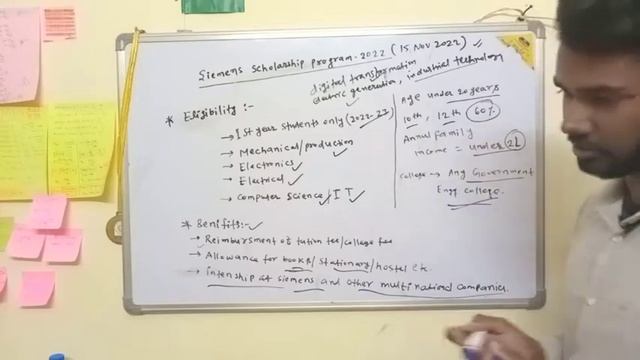 Siemens Scholarship Program-2022 (15 Nov 2022)
digital transformation
electric generation, industrial technology
* Eligibility :-
→ Ist year students only (2022-23)
→ Mechanical/production
→ Electronics
→ Electrical
→ Computer Science/IT
Age under 20 years
10th, 12th 60%
Annual Family
income = under 2L
College → Any Government
Engg college.
* Benifits:-
→ Reimbursment of tution fee/college fee
→ Allowance for books/stationary/hostel etc.
→ intenship at siemens and other multinational companies.